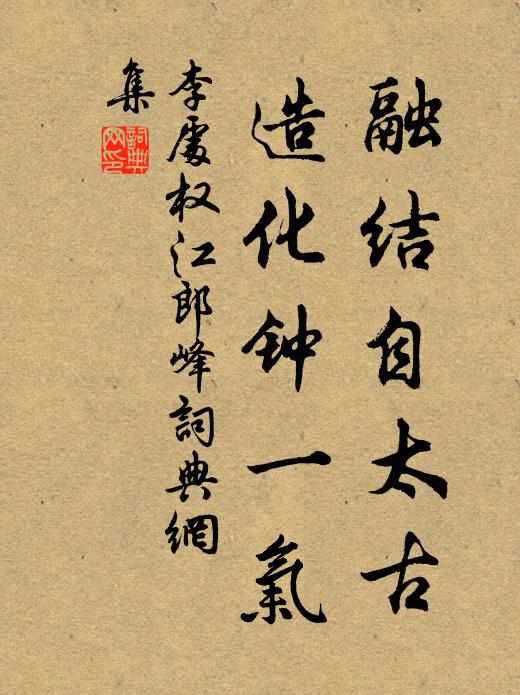 融结自太古
造化钟一氣
李處权江郎峰詞典網
集
詞典网印